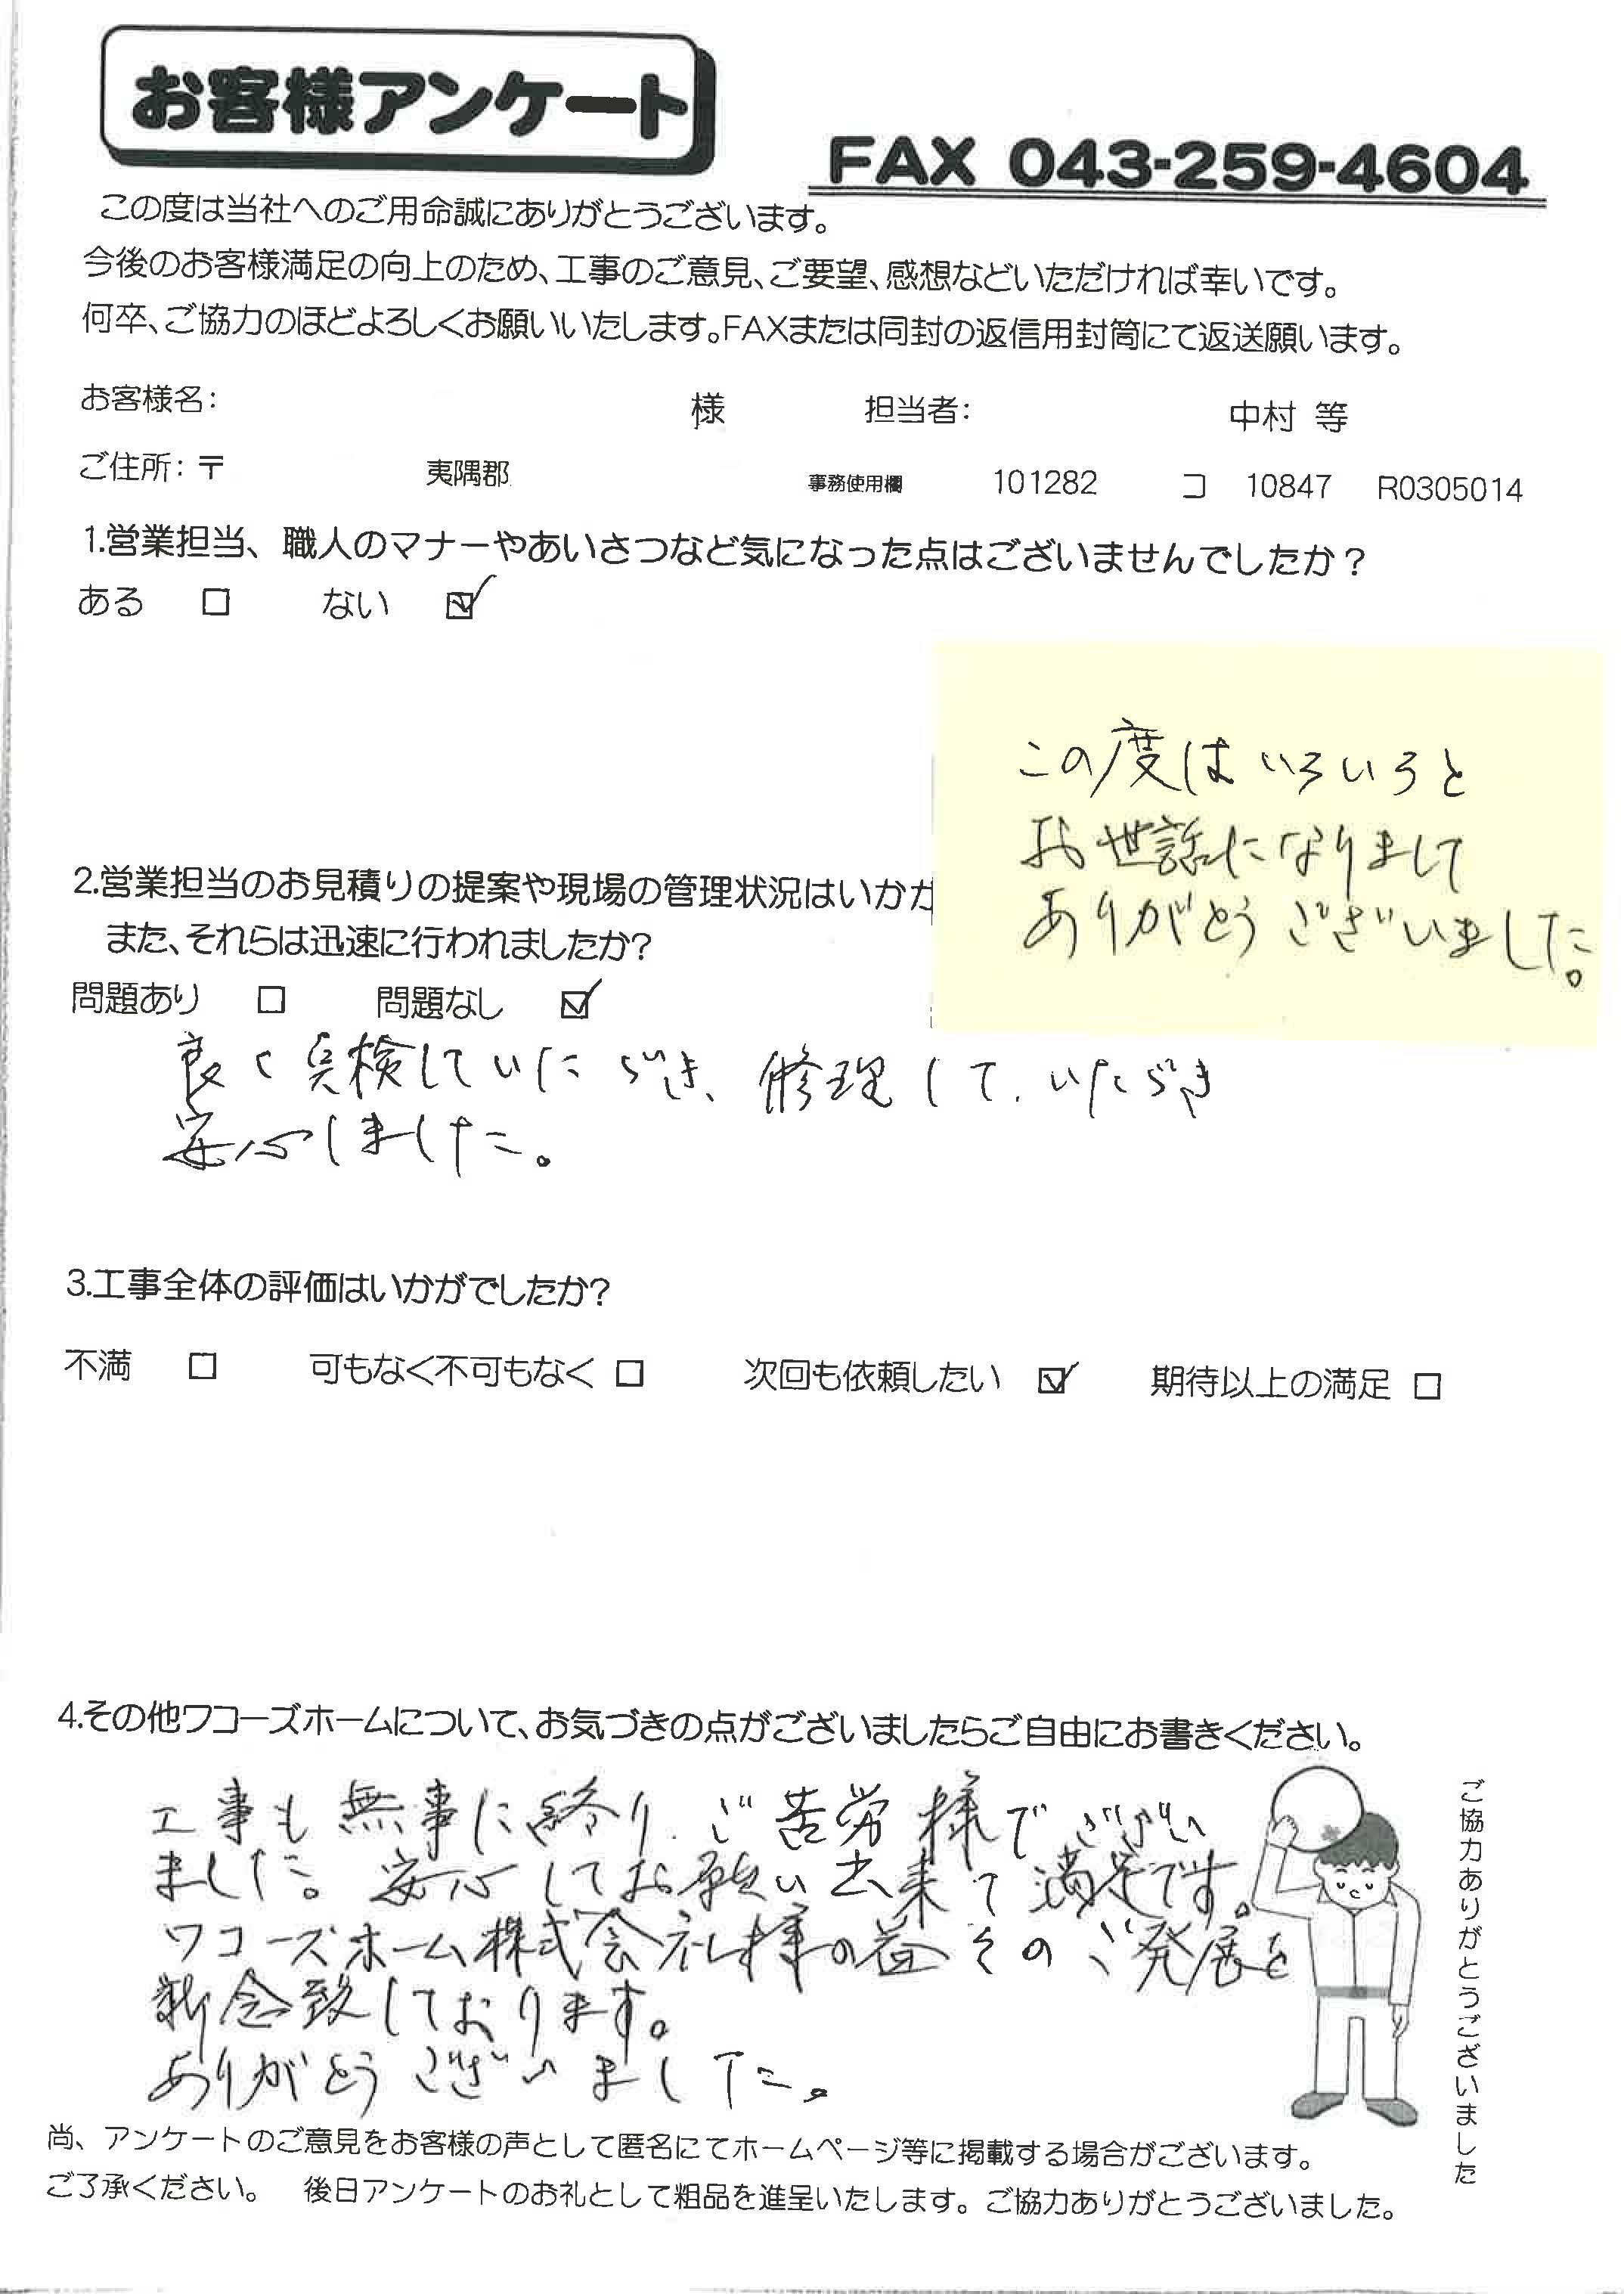 お客様アンケート
FAX 043-259-4604
この度は当社へのご用命誠にありがとうございます。
今後のお客様満足の向上のため、工事のご意見、ご要望、感想などいただければ幸いです。
何卒、ご協力のほどよろしくお願いいたします。FAXまたは同封の返信用封筒にて返送願います。
お客様名: 様 担当者: 中村 等
ご住所: 〒 夷隅郡 事務使用欄 101282 コ 10847 R0305014
1.営業担当、職人のマナーやあいさつなど気になった点はございませんでしたか？
ある □ ない ☑
この度はいろいろと
お世話になりまして
ありがとうございました。
2.営業担当のお見積りの提案や現場の管理状況はいかが
また、それらは迅速に行われましたか?
問題あり □ 問題なし ☑
良く点検していただき、修理して、いただき
安心しました。
3.工事全体の評価はいかがでしたか?
不満 □ 可もなく不可もなく □ 次回も依頼したい ☑ 期待以上の満足 □
4.その他ワコーズホームについて、お気づきの点がございましたらご自由にお書きください。
工事も無事に終り、ご苦労様でござい
ました。安心してお願い出来て満足です。
ワコーズホーム株式会社様の益そのご発展を
祈念致しております。
ありがとうございました。
ご協力ありがとうございました
尚、アンケートのご意見をお客様の声として匿名にてホームページ等に掲載する場合がございます。
ご了承ください。 後日アンケートのお礼として粗品を進呈いたします。ご協力ありがとうございました。